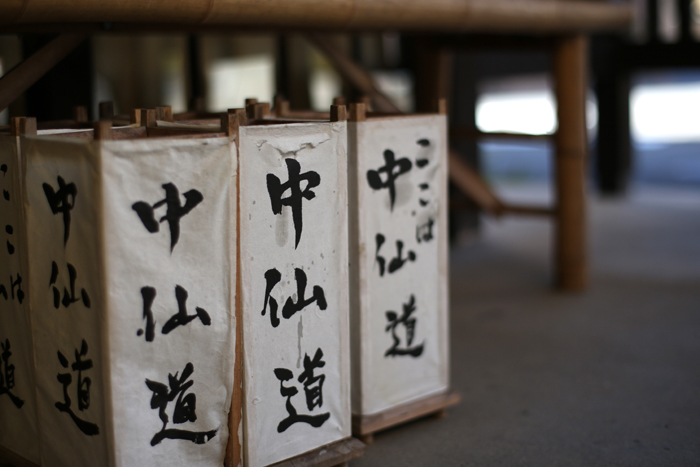 ここは
中仙道
中仙道
中仙道
ここは
中仙道